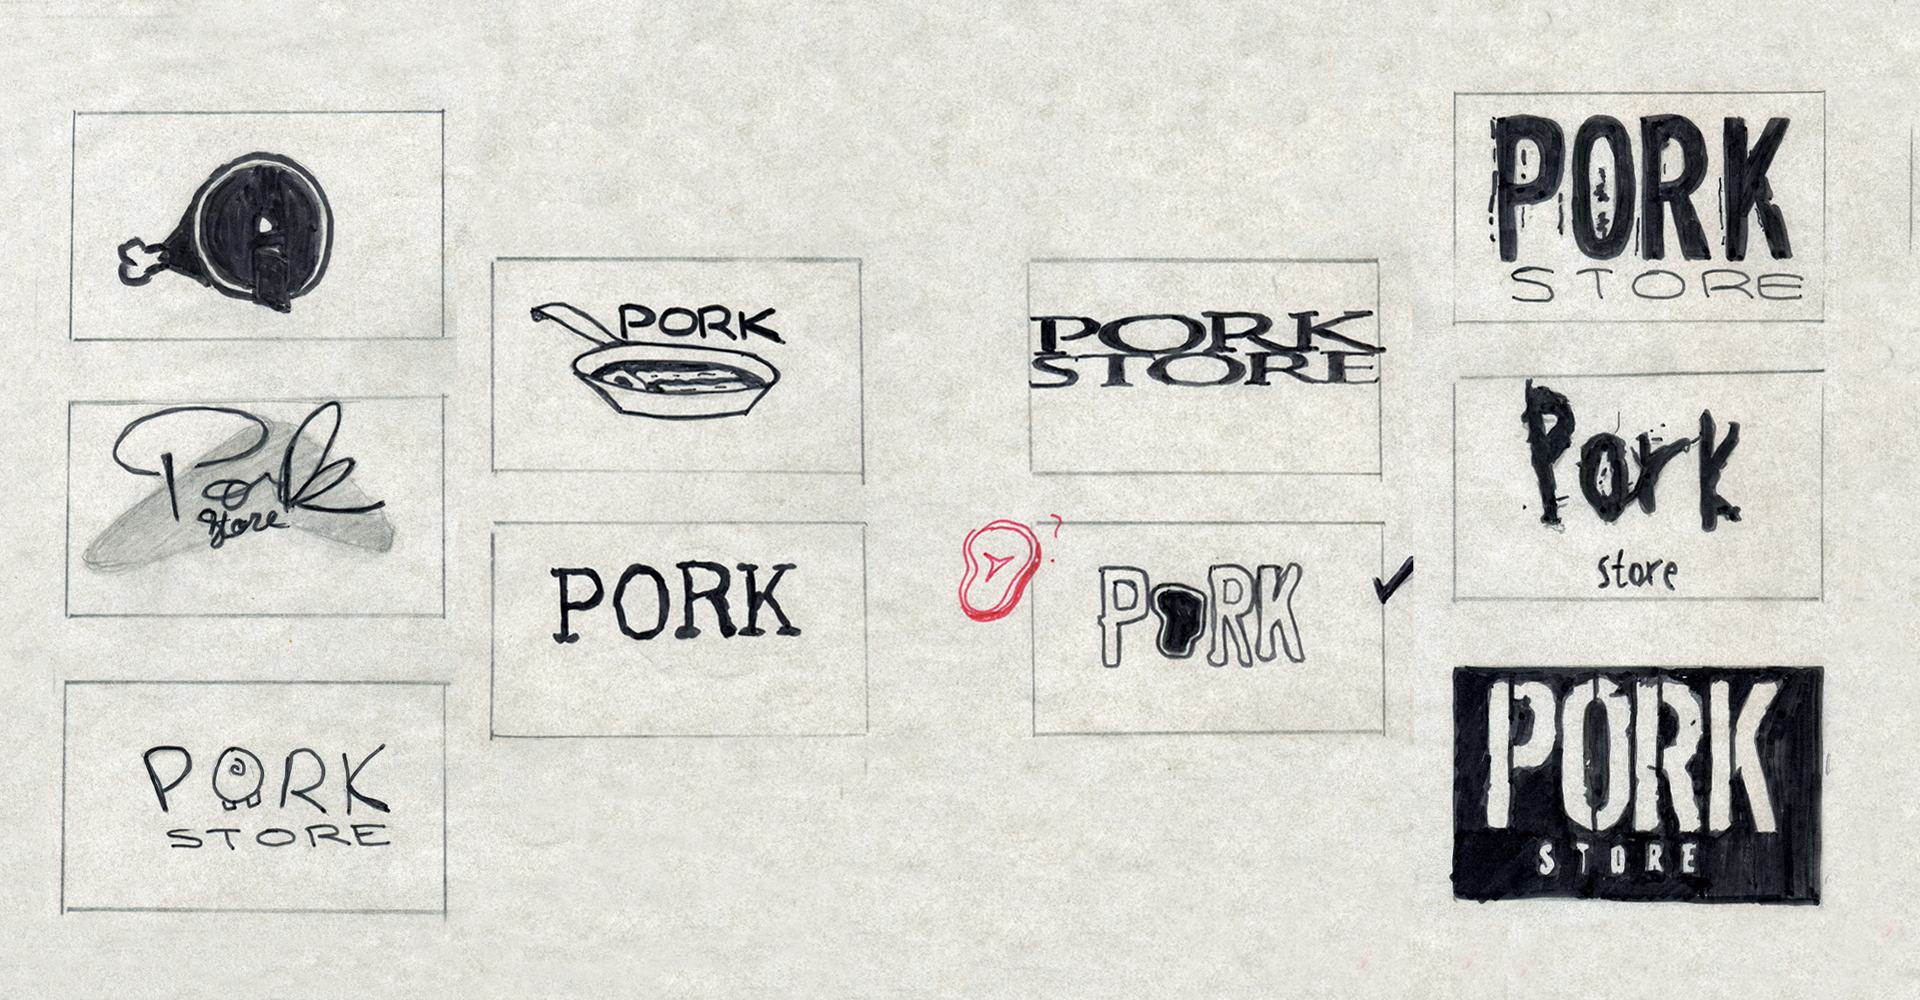 Pork
Store
PORK
STORE
PORK
PORK
PORK
STORE
?
PORK
PORK
STORE
Pork
store
PORK
STORE